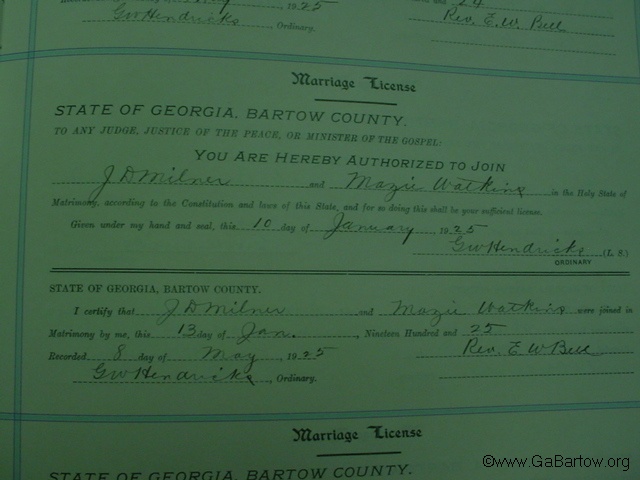 1925
G W Hendricks, Ordinary.
and 24
Rev. E. W. Bell
Marriage License
STATE OF GEORGIA, BARTOW COUNTY.
TO ANY JUDGE, JUSTICE OF THE PEACE, OR MINISTER OF THE GOSPEL:
YOU ARE HEREBY AUTHORIZED TO JOIN
J D Milner and Mazie Watkins in the Holy State of
Matrimony, according to the Constitution and laws of this State, and for so doing this shall be your sufficient license.
Given under my hand and seal, this 10 day of January, 1925
G W Hendricks (L. S.)
ORDINARY
STATE OF GEORGIA, BARTOW COUNTY.
I certify that J D Milner and Mazie Watkins were joined in
Matrimony by me, this 13 day of Jan., Nineteen Hundred and 25
Recorded 8 day of May, 1925 Rev. E W Bell
G W Hendricks, Ordinary.
Marriage License
STATE OF GEORGIA, BARTOW COUNTY.
©www.GaBartow.org